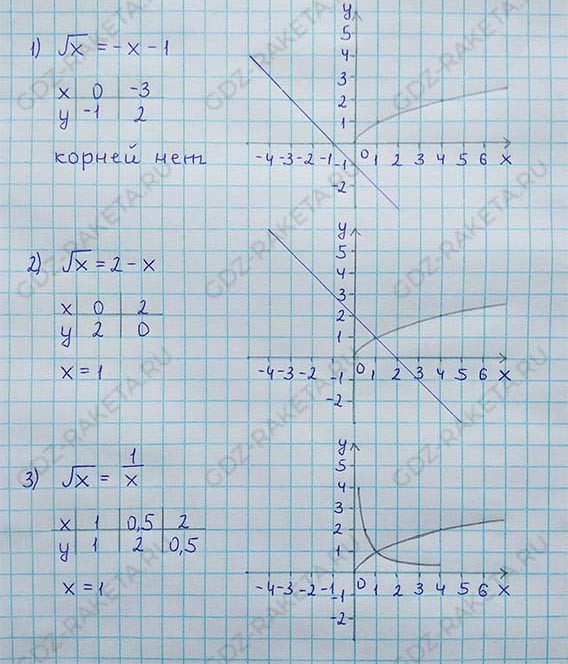 1) √x = -x - 1
x 0 -3
y -1 2
корней нет
y
5
4
3
2
1
-4 -3 -2 -1 0 1 2 3 4 5 6 x
-1
-2
2) √x = 2 - x
x 0 2
y 2 0
x = 1
y
5
4
3
2
1
-4 -3 -2 0 1 2 3 4 5 6 x
-1
-2
3) √x = 1/x
x 1 0,5 2
y 1 2 0,5
x = 1
y
5
4
3
2
1
-4 -3 -2 -1 0 1 2 3 4 5 6 x
-1
-2
GDZ-RAKETA.RU